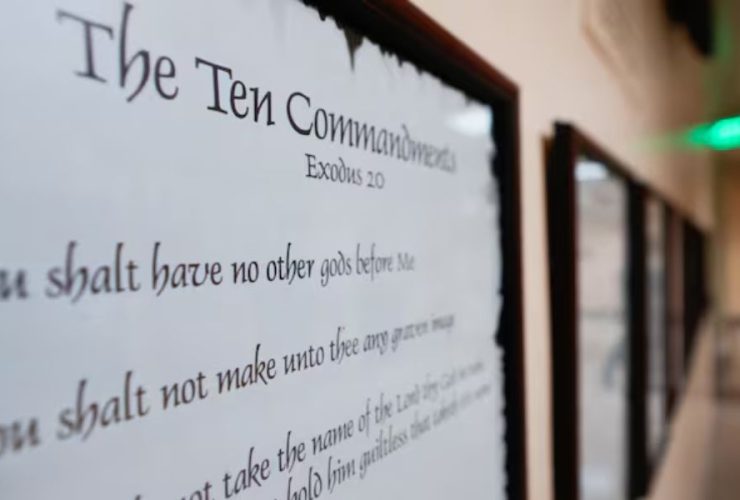 The Ten Commandments
Exodus 20
u shalt have no other gods before Me
ou shalt not make unto thee any graven image
not take the name of the Lord thy God
hold him guiltless that taketh